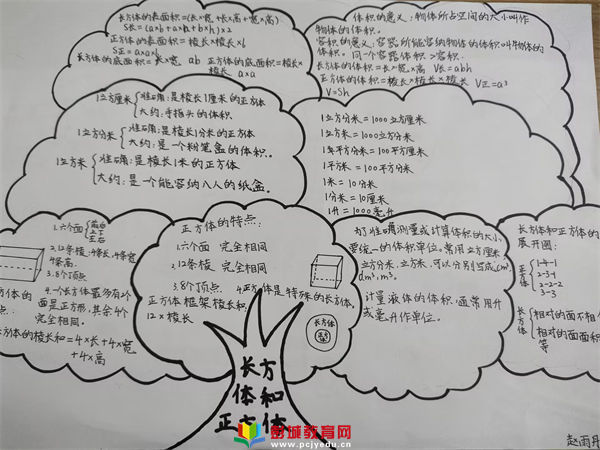 长方体的表面积=(长×宽+长×高+宽×高)
S长=(a×b+a×h+b×h)×2
正方体的表面积=棱长×棱长×6
S正=a×a×6
长方体的底面积=长×宽 ab 正方体的底面积=棱长×
棱长 a×a
体积的意义:物体所占空间的大小叫作
物体的体积。
容积的意义:容器所能容纳物体的体积叫物体的
体积。同一个容器体积>容积.
长方体的体积=长×宽×高 V长=abh
正方体的体积=棱长×棱长×棱长 V正=a³
V=Sh
1立方厘米 准确:是棱长1厘米的正方体
大约:手指头的体积。
1立方分米 准确:是棱长1分米的正方体
大约:是一个粉笔盒的体积。
1立方米 准确:是棱长1米的正方体
大约:是一个能容纳八人的纸盒。
1立方分米=1000立方厘米
1立方米=1000立方分米
1平方分米=100平方厘米
1平方米=100平方分米
1米=10分米
1分米=10厘米
1升=1000毫升
1.六个面 前后
上下
左右
2.12条棱,4条长,4条宽
4条高.
3.8个顶点.
4.一个长方体最多有2个
面是正方形,其余4个
完全相同。
方体的棱长和=4×长+4×宽
+4×高
正方体的特点:
1.六个面 完全相同
2.12条棱 完全相同
3.8个顶点 4.正方体是特殊的长方体。
正方体框架棱长和:
12×棱长
长方体
正方
为了准确测量或计算体积的大小,
要统一的体积单位。常用立方厘米
立方分米、立方米,可以分别写成cm³,
dm³,m³。
计量液体的体积,通常用升
或毫升作单位。
长方体和正方体的
展开图:
正方体 1-4-1
2-3-1
2-2-2
3-3
长方体 相对的面不相
相对的面面积
等
长方
体和
正方体
赵雨丹
蒲城教育网
www.pcjyedu.com